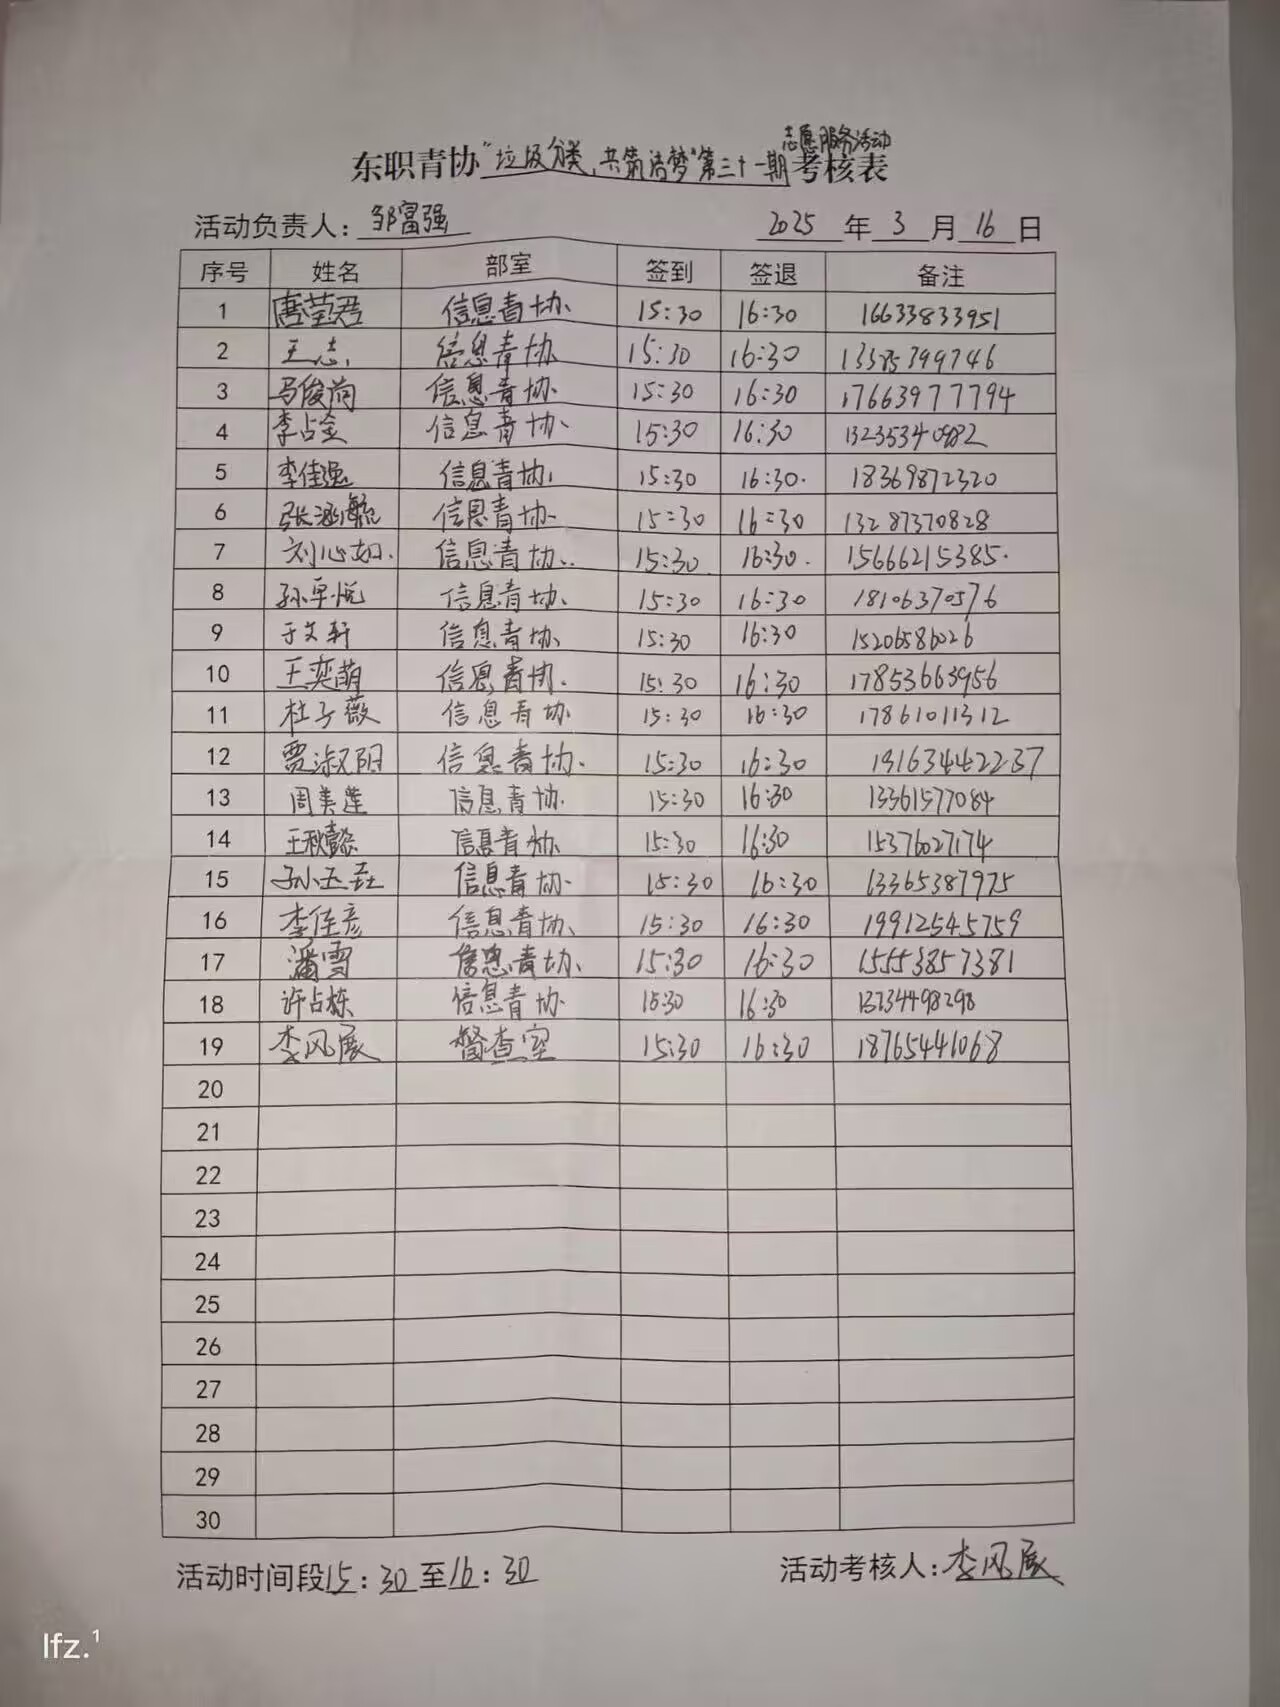 志愿服务活动
东职青协"垃圾分类,共筑洁梦"第三十一期考核表
活动负责人: 邹富强 2025 年 3 月 16 日
序号 姓名 部室 签到 签退 备注
1 唐莹君 信息青协 15:30 16:30 16633833951
2 王志 信息青协 15:30 16:30 13385399746
3 马俊尚 信息青协 15:30 16:30 17663977794
4 李占金 信息青协 15:30 16:30 13235340982
5 李佳强 信息青协 15:30 16:30 18369872320
6 张涵毓 信息青协 15:30 16:30 13287370828
7 刘心如 信息青协 15:30 16:30 15666215385
8 孙卓悦 信息青协 15:30 16:30 18106370576
9 于文轩 信息青协 15:30 16:30 15206586026
10 王奕萌 信息青协 15:30 16:30 17853663956
11 杜子薇 信息青协 15:30 16:30 17861011312
12 贾淑阳 信息青协 15:30 16:30 19163442237
13 周美莲 信息青协 15:30 16:30 13361577084
14 王秋懿 信息青协 15:30 16:30 15376027174
15 孙玉磊 信息青协 15:30 16:30 13365387975
16 李佳彦 信息青协 15:30 16:30 19912545759
17 潘雪 信息青协 15:30 16:30 15553857381
18 许占栋 信息青协 15:30 16:30 13734498298
19 李风展 督查室 15:30 16:30 18765441068
20
21
22
23
24
25
26
27
28
29
30
活动时间段15:30至16:30 活动考核人:李风展
lfz.¹